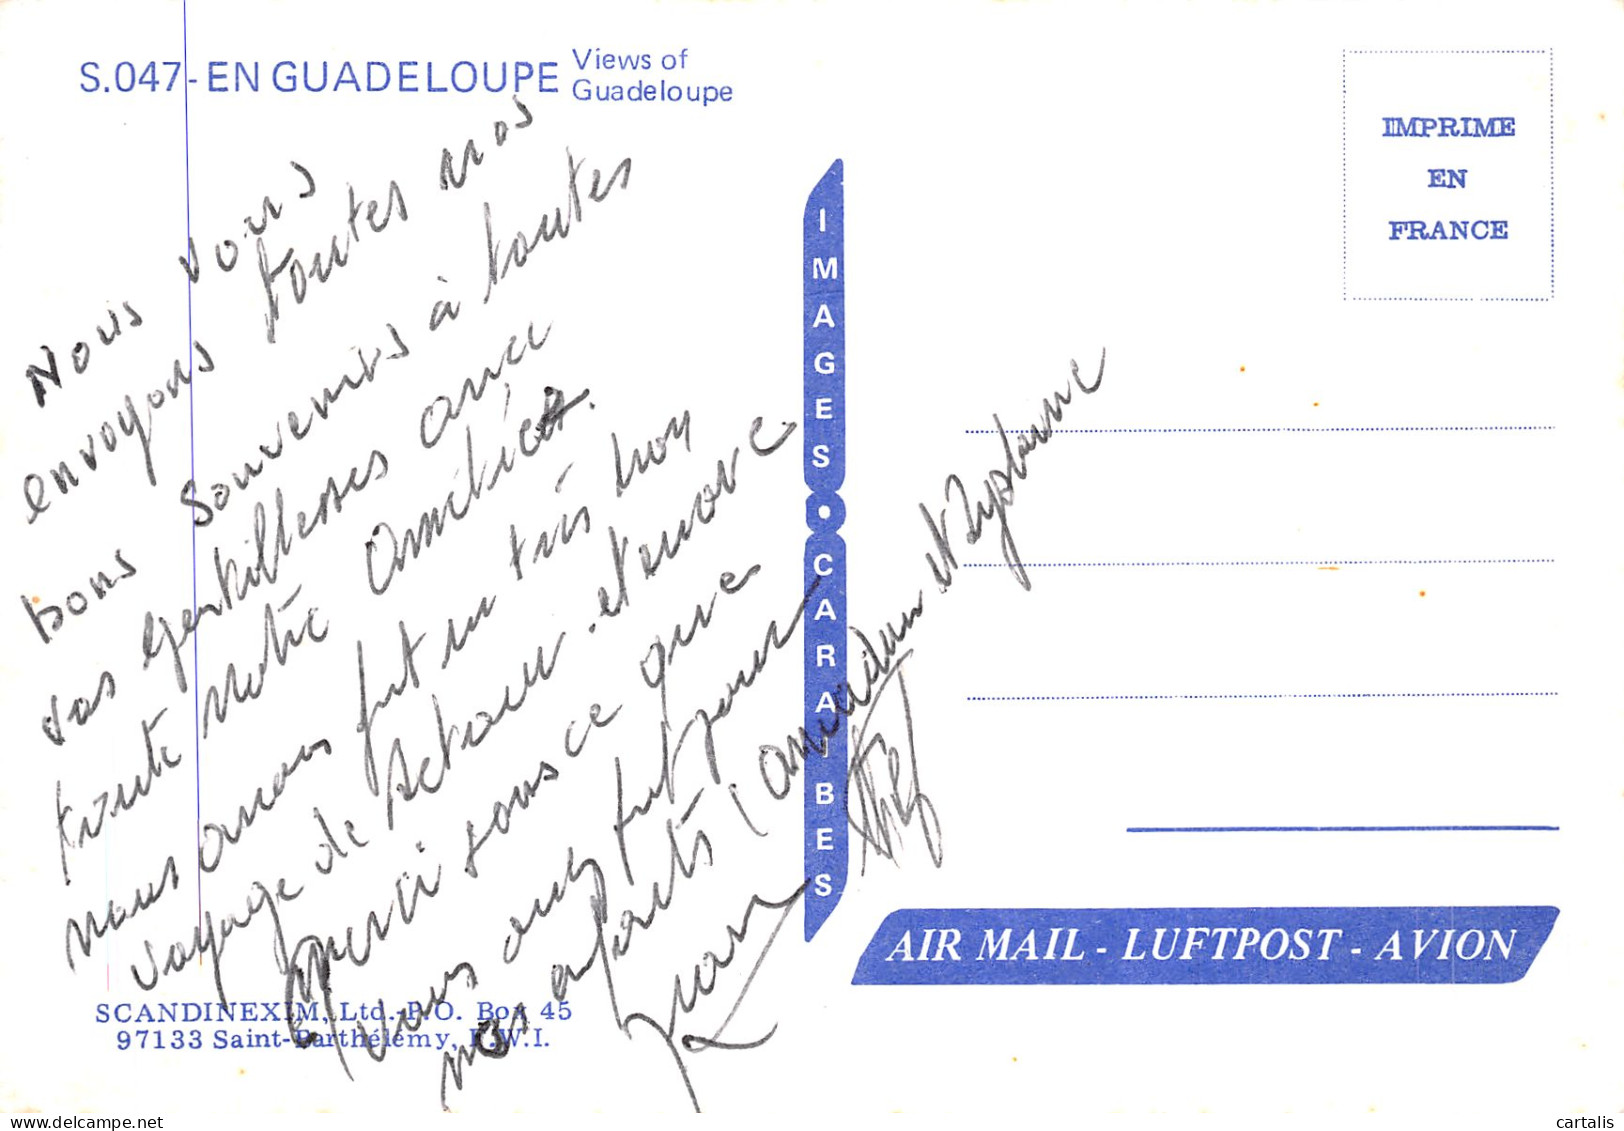 S.047-EN GUADELOUPE
Views of
Guadeloupe
IMPRIME
EN
FRANCE
IMAGES • CARAIBES
Nous vous
envoyons toutes nos
bons souvenirs à toutes
vos gentillesses avec
toute notre amitié.
nous avons fait un très bon
voyage de retour et encore
merci tous ce que
vous avez fait pour
nos
et
AIR MAIL - LUFTPOST - AVION
SCANDINEXIM, Ltd.-P.O. Box 45
97133 Saint-Barthélemy, F.W.I.
cartalis